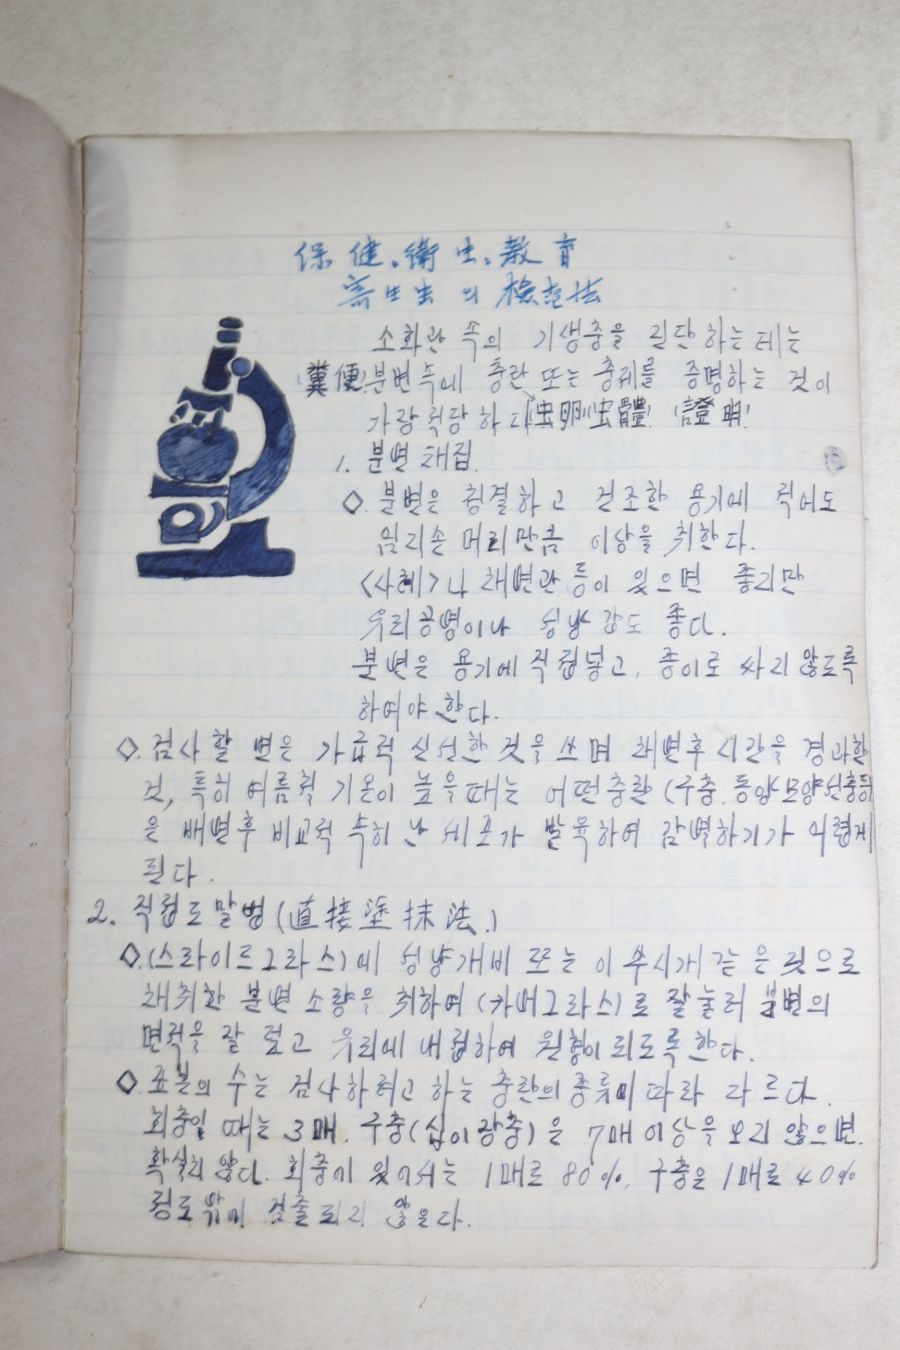 保健.衛生.教育
寄生虫의 檢査法
소화관 속의 기생충을 진단하는데는
(糞便)분변속에 충란 또는 충체를 증명하는 것이
가장 적당하다(虫卵)(虫體) (證明)
1. 분변 채집.
◇. 분변은 청결하고 건조한 용기에 적어도
엄지손 머리만큼 이상을 취한다.
<사례>나 채변관 등이 있으면 좋지만
우리공병이나 성냥갑도 좋다.
분변은 용기에 직접넣고, 종이로 싸지 않도록
하여야 한다.
◇. 검사할 변은 가급적 신선한 것을 쓰며 채변후 시간을 경과한
것, 특히 여름철 기온이 높을때는 어떤충란 (구충.동양모양선충등
은 배변후 비교적 속히 난세포가 발육하여 감별하기가 어렵게
된다.
2. 직접도말법(直接塗抹法.)
◇.(스라이드그라스)에 성냥개비 또는 이쑤시개 같은것으로
채취한 분변 소량을 취하여 (카버그라스)로 잘눌러 분변의
면적을 잘 펴고 우리에 내접하여 원형이 되도록한다.
◇. 표본의 수는 검사하려고 하는 충란의 종류에 따라 다르다.
회충일 때는 3매. 구충(십이장충)은 7매 이상을 보지 않으면.
확실치 않다. 회충에 있어서는 1매로 80%, 구충은 1매로 40%
정도 밖에 검출되지 않은다.